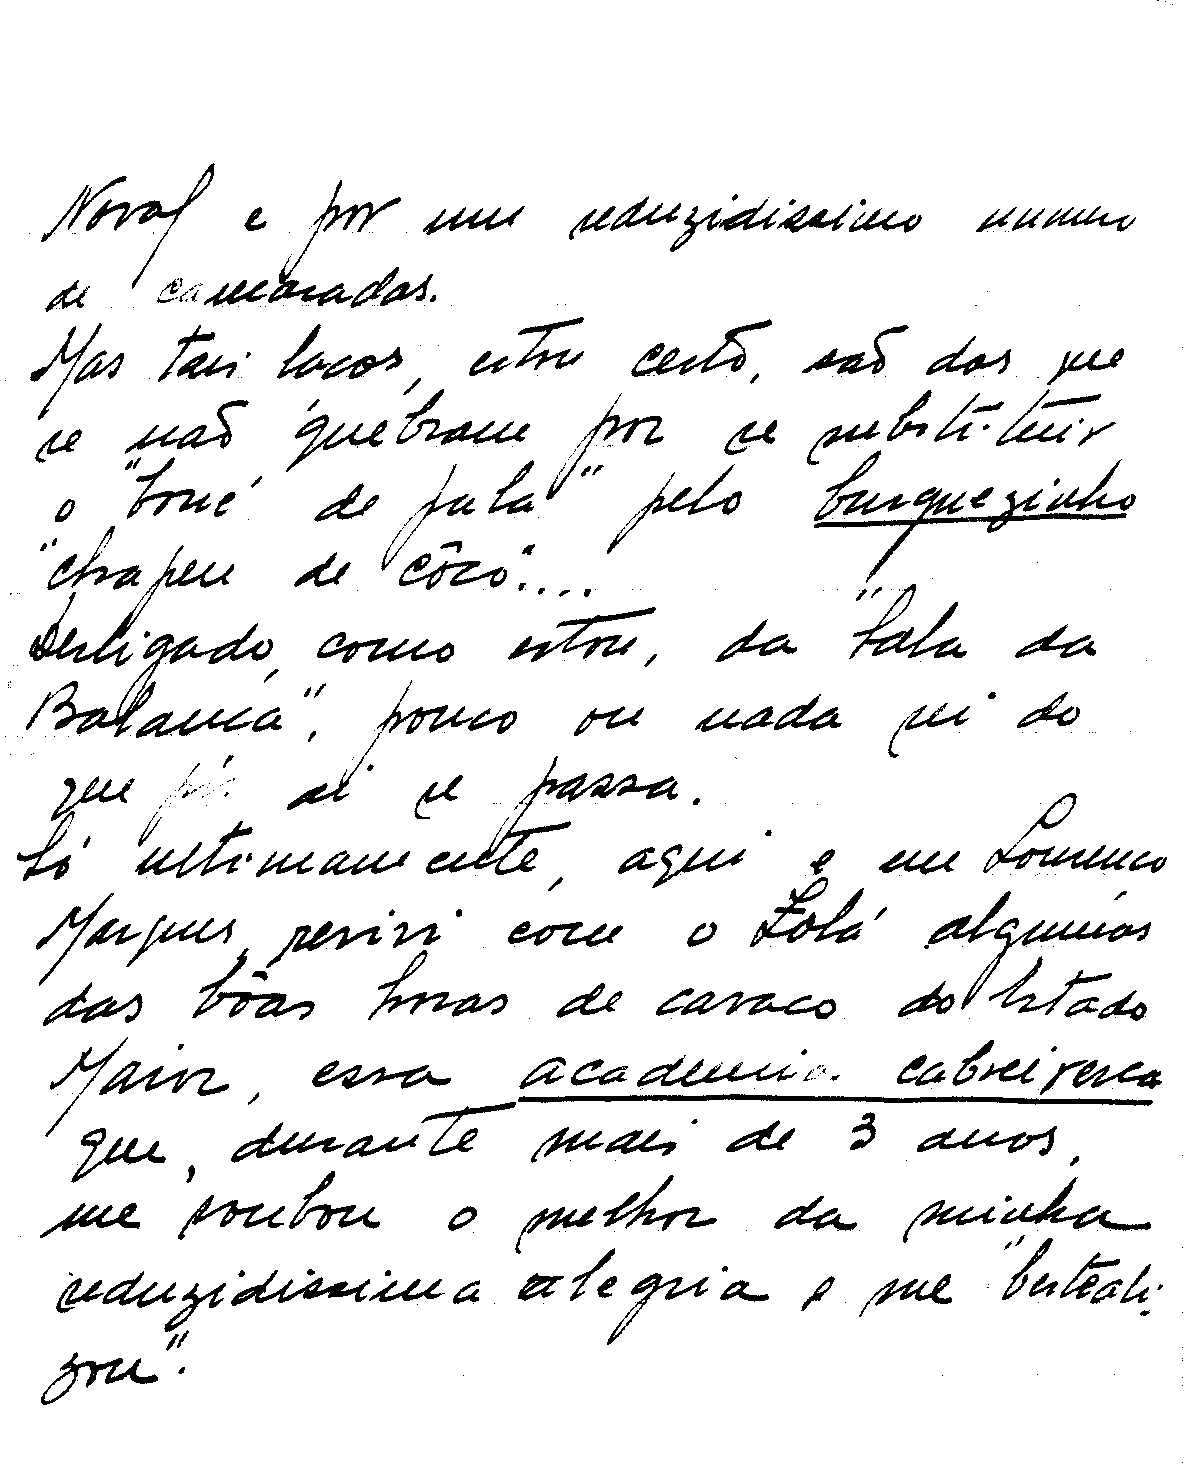 Naval e por um reduzidissimo numero
de camaradas.
Mas tais laços, estou certo, são dos que
se não quebram por se substituir
o "boné de pala" pelo burguezinho
"chapeu de côco"....
Desligado, como estou, da "Sala da
Balança", pouco ou nada sei do
que por aí se passa.
Só ultimamente, aqui e em Lourenço
Marques, revivi com o Zolá algumas
das bôas horas de cavaco do Estado
Maior, essa academia cabreiresca
que, durante mais de 3 anos,
me roubou o melhor da minha
reduzidissima alegria e me "besteali-
zou".